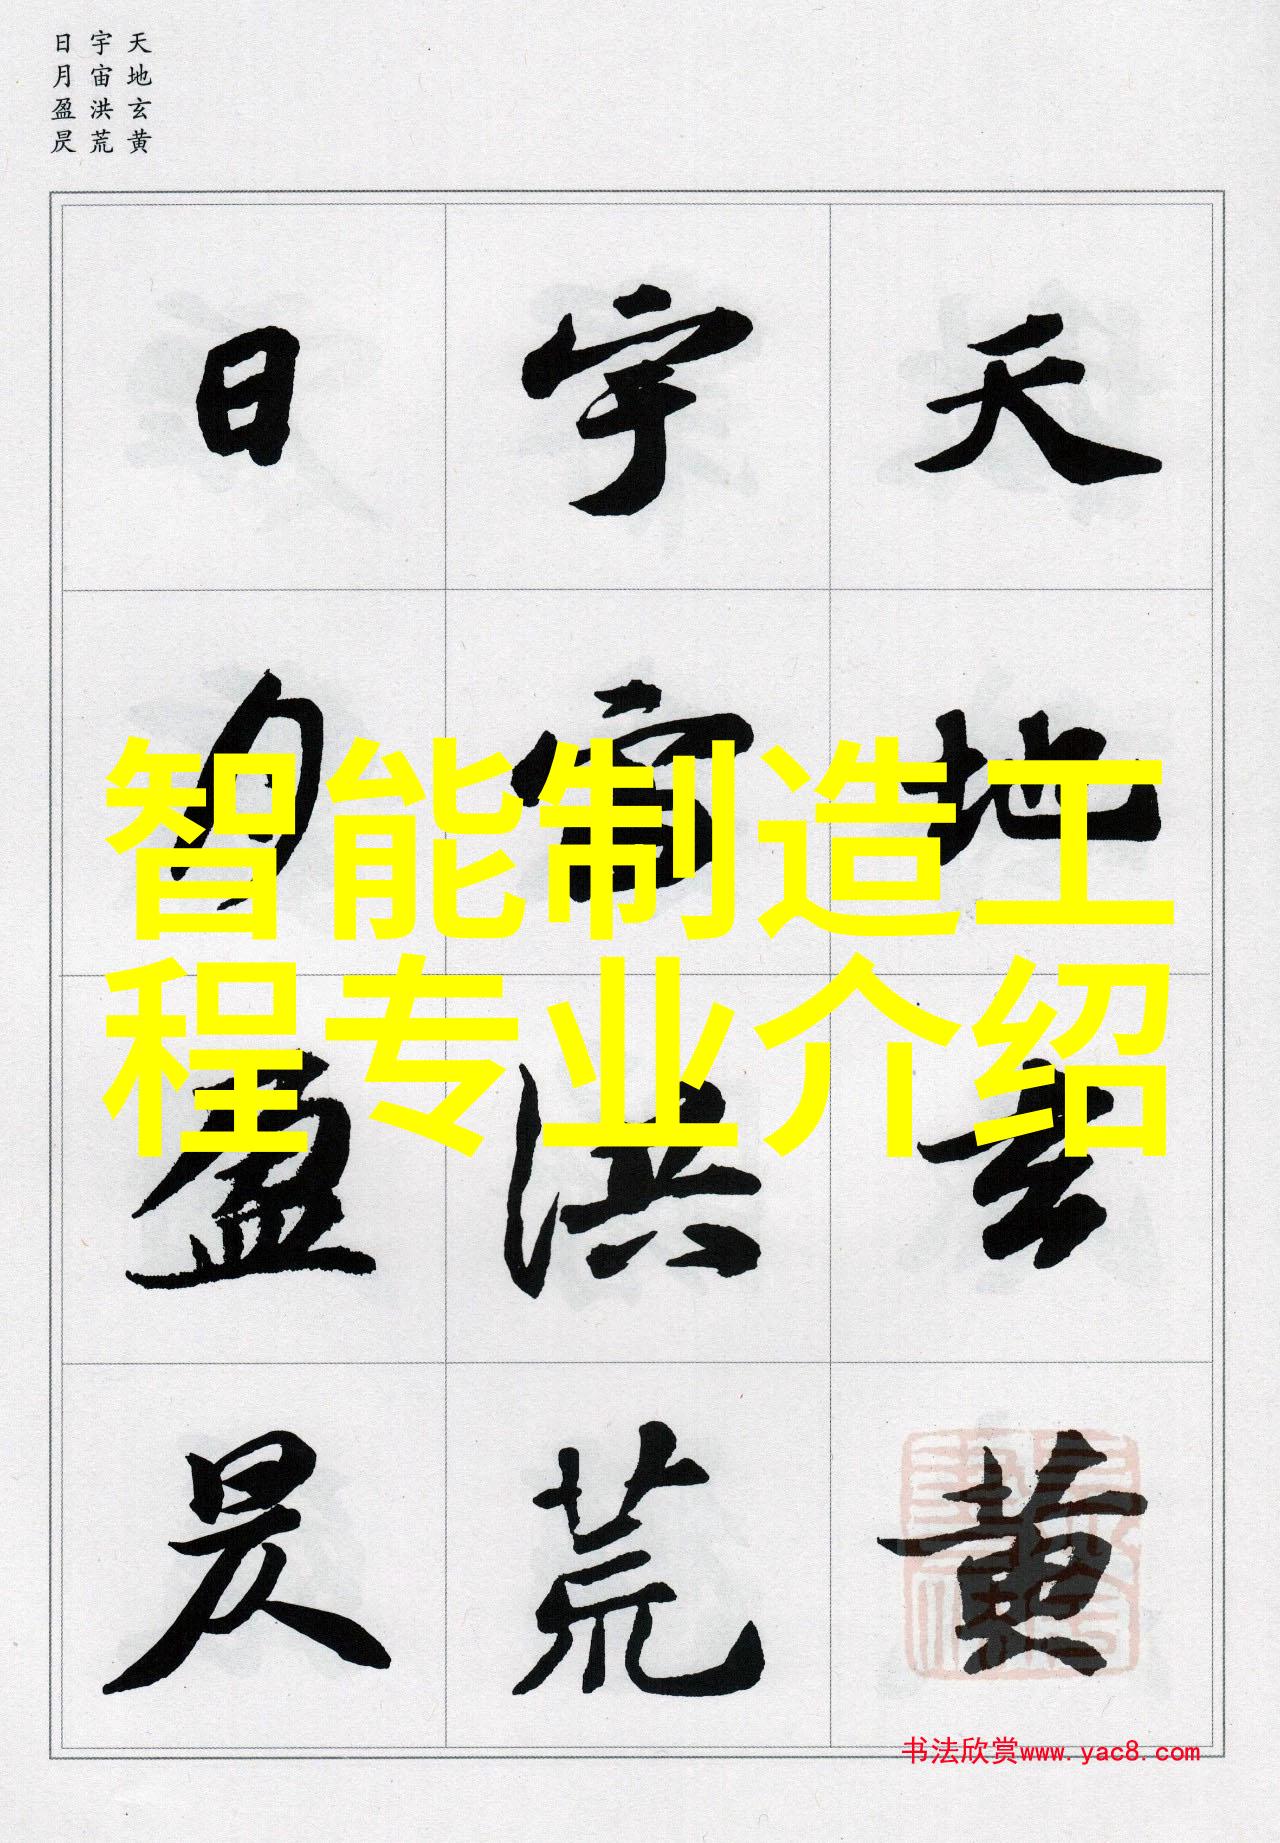 天地玄黄
宇宙洪荒
日月盈昃
天地玄黄
宇宙洪荒
日月盈昃
智能制造工
程专业介绍
书法欣赏www.yac8.com